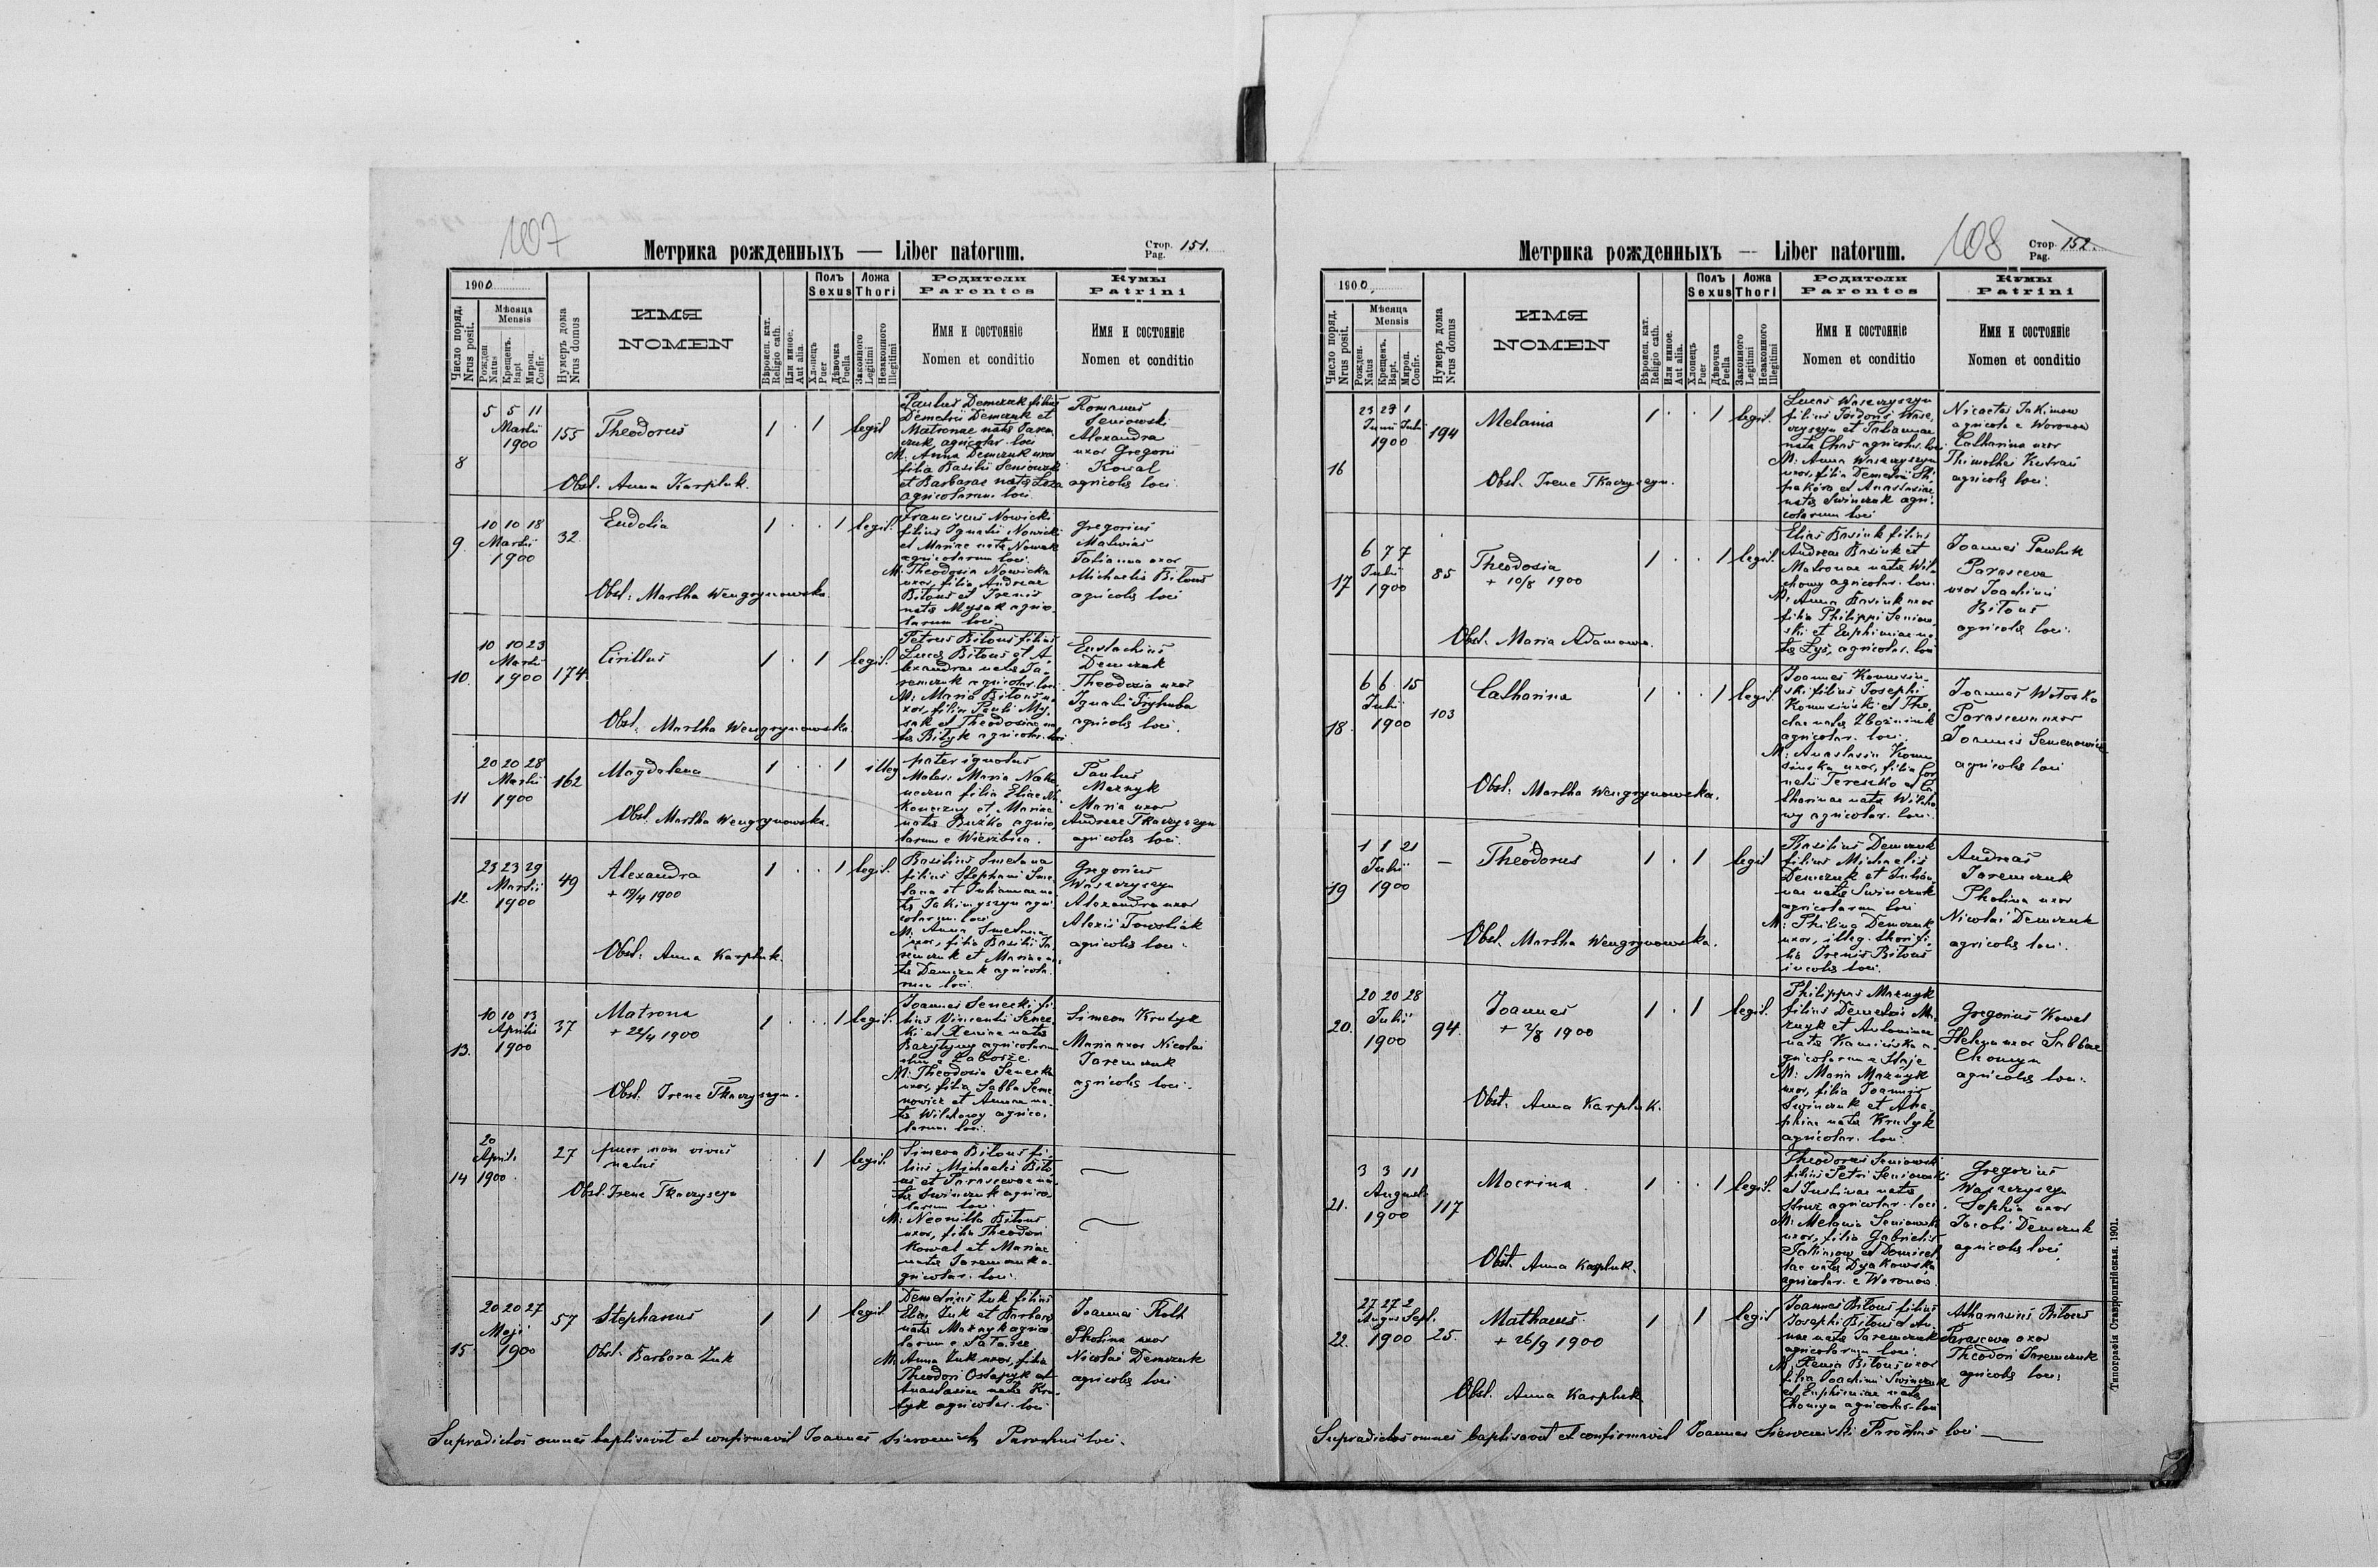 107
Метрика рожденныхъ — Liber natorum.
Стор. 151.
Pag.
1900
Число поряд.
Nrus posit.
Мѣсяца
Mensis
Рожден
Natus
Крещенъ.
Bapt
Мироп.
Confir.
Нумеръ дома
Nrus domus
ИМЯ
NOMEN
Вѣроисп. кат.
Religio cath.
Или инное.
Aut alia.
Полъ
Sexus
Хлопецъ
Puer
Дѣвочка
Puella
Ложа
Thori
Законного
Legitimi
Незаконного
Illegitimi
Родители
Parentes
Имя и состояніе
Nomen et conditio
Кумы
Patrini
Имя и состояніе
Nomen et conditio
8
5 5 11
Martii
1900
155
Theodorus
Obst. Anna Karpluk.
1 . 1
legit
Paulus Demczuk filius
Demetrii Demczuk et
Matronae natae
agricolar. loci
M: Anna Demczuk uxor
filia Basilii Seniowski
et Barbarae natae
agricolarum loci.
Romanus
Seniowski
Alexandra
uxor Gregorii
Kowal
agricolae loci
9
10 10 18
Martii
1900
32
Eudolia
Obst: Martha Wengrynowska
1 . . 1
legit.
Franciscus Nowicki
filius Ignatii Nowicki
et Mariae natae Nowak
agricolarum loci.
M: Theodosia Nowicka
uxor, filia Andreae
Bitous et Irenis
natae Mysak agrico-
larum loci
Gregorius
Matwias
Tatianna uxor
Michaelis Bitous
agricolae loci
10.
10 10 23
Martii
1900
174
Cirillus
Obst: Martha Wengrynowska.
1 . 1
legit.
Petrus Bitous filius
Lucae Bitous et A-
lexandrae natae Ja-
remczuk agricolar. loci
M: Maria Bitous u-
xor, filia Pauli My-
sak et Theodosiae na-
tae Bityk agricolar. loci
Eustachius
Demczuk
Theodosia uxor
Ignatii Tryhuba
agricolae loci.
11
20 20 28
Martii
1900
162
Magdalena
Obst: Martha Wengrynowska.
1 . . 1
illeg
pater ignotus
Mater: Maria Nako-
neczna filia Eliae Na-
koneczny et Mariae
natae Buzko agrico-
larum e Wierzbica.
Paulus
Maznyk
Maria uxor
Andreae Tkaczyszyn
agricolae loci.
12
23 23 29
Martii
1900
49
Alexandra
+ 19/4 1900
Obst: Anna Karpluk.
1 . . 1
legit.
Basilius Smetana
filius Stephani Sme-
tana et Julianae na-
tae Jakimyszyn agri-
colarum loci
M: Anna Smetana
uxor, filia Basilii Ja-
remczuk et Mariae na-
tae Demczuk agricola-
rum loci.
Gregorius
Waszczyszyn
Alexandra uxor
Alexii
agricolae loci.
13.
10 10 13
Aprilis
1900
37
Matrona
+ 22/4 1900
Obst: Irene Tkaczyszyn.
1 . . 1
legit.
Joannes Senecki fi-
lius Vincentii Senec-
ki et Xeniae natae
agricolarum
M: Theodosia Senecka
uxor, filia Sabba Seme-
nowicz et Annae na-
tae Wilchowy agrico-
larum loci.
Simeon Krutyk
Maria uxor Nicolai
Jaremczuk
agricolae loci.
14
20
April:
1900
27
puer non vivus
natus
Obst: Irene Tkaczyszyn
. 1
legit.
Simeon Bitous fi-
lius Michaelis Bito-
us et Parascevae na-
tae Swinczuk agrico-
larum loci.
M: Neonilla Bitous
uxor, filia Theodori
Kowal et Mariae
natae Jaremczuk a-
gricolar. loci.
15.
20 20 27
Maji
1900
57
Stephanus
Obst: Barbara Zuk
1 1
legit
Demetrius Zuk filius
Eliae Zuk et Barbarae
natae Maznyk agrico-
larum e
M: Anna Zuk uxor, filia
Theodori Ostapyk et
Anastasiae natae Kru-
tyk agricolar. loci
Joannes
Photina uxor
Nicolai Demczuk
agricolae loci
Supradictos omnes baptisavit et confirmavit Joannes Parochus loci.
108
Метрика рожденныхъ — Liber natorum.
Стор. 152.
Pag.
1900
Число поряд.
Nrus posit.
Мѣсяца
Mensis
Рожден.
Natus
Крещенъ.
Bapt.
Мироп.
Confir.
Нумеръ дома
Nrus domus
ИМЯ
NOMEN
Вѣроисп. кат.
Religio cath.
Или инное.
Aut alia.
Полъ
Sexus
Хлопецъ
Puer
Дѣвочка
Puella
Ложа
Thori
Законного
Legitimi
Незаконного
Illegitimi
Родители
Parentes
Имя и состояніе
Nomen et conditio
Кумы
Patrini
Имя и состояніе
Nomen et conditio
16
23 23 1
Junii Julii
1900
194
Melania
Obst. Irene Tkaczyszyn.
1 . . 1
legit.
Lucas Waszczyszyn
filius Isidori Wasz-
czyszyn et Tatiannae
natae agricolar. loci.
M: Anna Waszczyszyn
uxor, filia Demetrii
et Anastasiae
natae Swinczuk agri-
colarum loci
Nicaetas Jakimow
agricola e Woronow
Catharina uxor
Thimothei
agricolae loci.
17
6 7 7
Julii
1900
85
Theodosia
+ 10/8 1900
Obst. Maria Adamowa.
1 . . 1
legit.
Elias Basiuk filius
Andreae Basiuk et
Matronae natae Wil-
chowy agricolar. loci.
M: Anna Basiuk uxor
filia Philippi Seniow-
ski et Euphimiae na-
tae Lys, agricolar. loci
Joannes Pawluk
Parasceva
uxor Joachimi
Bitous
agricolae loci.
18.
6 6 15
Julii
1900
103
Catharina
Obst. Martha Wengrynowska.
1 . . 1
legit.
Joannes
filius Josephi
et The-
clae natae
agricolar. loci.
M: Anastasia
uxor, filia Cor-
nelii Tereszko et Ca-
tharinae natae Wilcho-
wy agricolar. loci.
Joannes
Parasceva uxor
Joannis Semenowicz
agricolae loci
19
1 1 21
Julii
1900
—
Theodorus
Obst. Martha Wengrynowska.
1 . 1
legit
Basilius Demczuk
filius Michaelis
Demczuk et Julian-
nae natae Swinczuk
agricolarum loci
M: Demczuk
uxor, illeg. thori fi-
lia Irenis Bitous
incolae loci.
Andreas
Jaremczuk
Photina uxor
Nicolai Demczuk
agricolae loci.
20.
20 20 28
Julii
1900
94.
Joannes
+ 2/8 1900
Obst. Anna Karpluk.
1 . 1
legit.
Philippus Maznyk
filius Demetrii Ma-
znyk et Antoninae
natae Kaminska a-
gricolarum e Staje
M: Maria Maznyk
uxor, filia Joannis
Swinczuk et Aga-
phiae natae Krutyk
agricolar. loci.
Gregorius Kowal
Helena uxor Sabbae
Chomyn
agricolae loci.
21.
3 3 11
August
1900
117
Mocrina
Obst. Anna Karpluk.
1 . . 1
legit.
Theodorus Seniowski
filius Petri Seniowski
et Justinae natae
agricolar. loci.
M: Melania Seniowska
uxor, filia Gabrielis
Jakimow et Domicel-
lae natae Dyakowska
agricolar. e Woronow
Gregorius
Waszczyszyn
Sophia uxor
Jacobi Demczuk
agricolae loci.
22.
27 27 2
Augus Sept.
1900
25.
Mathaeus
+ 26/9 1900
Obst. Anna Karpluk
1 1
legit
Joannes Bitous filius
Josephi Bitous et An-
nae natae Jaremczuk
agricolarum loci.
M: Xenia Bitous uxor
filia Joachimi Swinczuk
et Euphimiae natae
Chomyn agricolar. loci
Athanasius Bitous
Parasceva uxor
Theodori Jaremczuk
agricolae loci.
Supradictos omnes baptisavit et confirmavit Joannes Parochus loci
Типографія Ставропигійская. 1901.